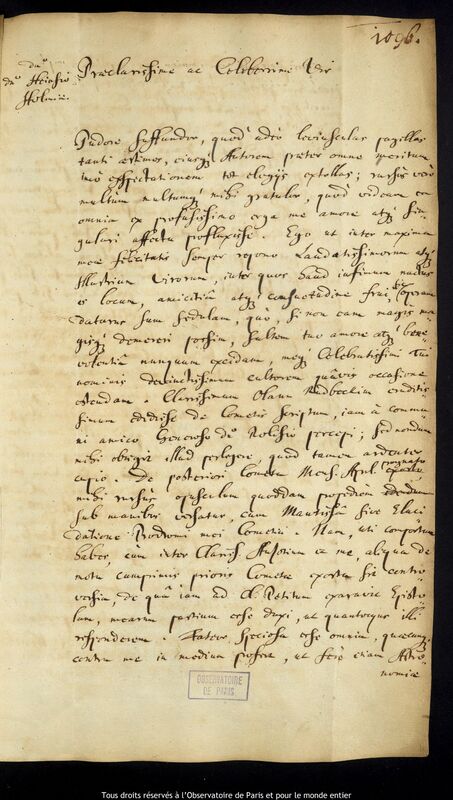 1096.
dno
dno Heinsio
Holmiæ.
Præclarissime ac Celeberrime Vir
Pudore suffundor, quod adeo leviusculas pagellas
tanti æstimes, ejusq; Autorem præter omne meritum
imo exspectationem tot elogijs extollas; rursus vero
multum multumq; mihi gratulor, quod videam ea
omnia ex profusissimo erga me amore atq; sin-
gulari affectu profluxisse. Ego ut inter maxima
meæ felicitatis semper repono Laudatissimorum atq;
Illustrium Virorum, inter quos haud infimum nactus
es locum, amicitiâ atq; consuetudine frui; sic operam
daturus sum sedulam, quò, si non eam magis ma-
gisq; demereri possim, saltem tuo amore atq; bene-
volentiâ nunquam excidam, meq; Celebratissimi Tui
nominis devinctissimum cultorem quâvis occasione
ostendam. Clarissimum Olaum Rudbeckium eruditis-
simum edidisse de Cometis scriptum, jam à commu-
ni amico, Generoso dno Nolesio percepi; sed nondum
mihi obtigit illud perlegere, quod tamen ardenter
cupio. De posteriori Cometa Mens. April. exorto
mihi rursus opusculum quoddam propediem edendum
sub manibus versatur, cum Mantissâ sive Eluci
datione Prodromi mei Cometici. Nam, uti compertum
habes, cum inter Clariss. Ausonium ac me, aliqua de
motu cumprimis prioris Cometæ exorta sit contro-
versia, de quâ jam ad Cl. Petitum exaravit Episto-
lam, mearum partium esse duxi, ut quantocyus illi
responderem. Fateor speciosa esse omnia, quæcunq;
contra me in medium profert, ut ferè etiam Astro-
nomiæ
OBSERVATOIRE
DE PARIS
Tous droits réservés à l'Observatoire de Paris et pour le monde entier